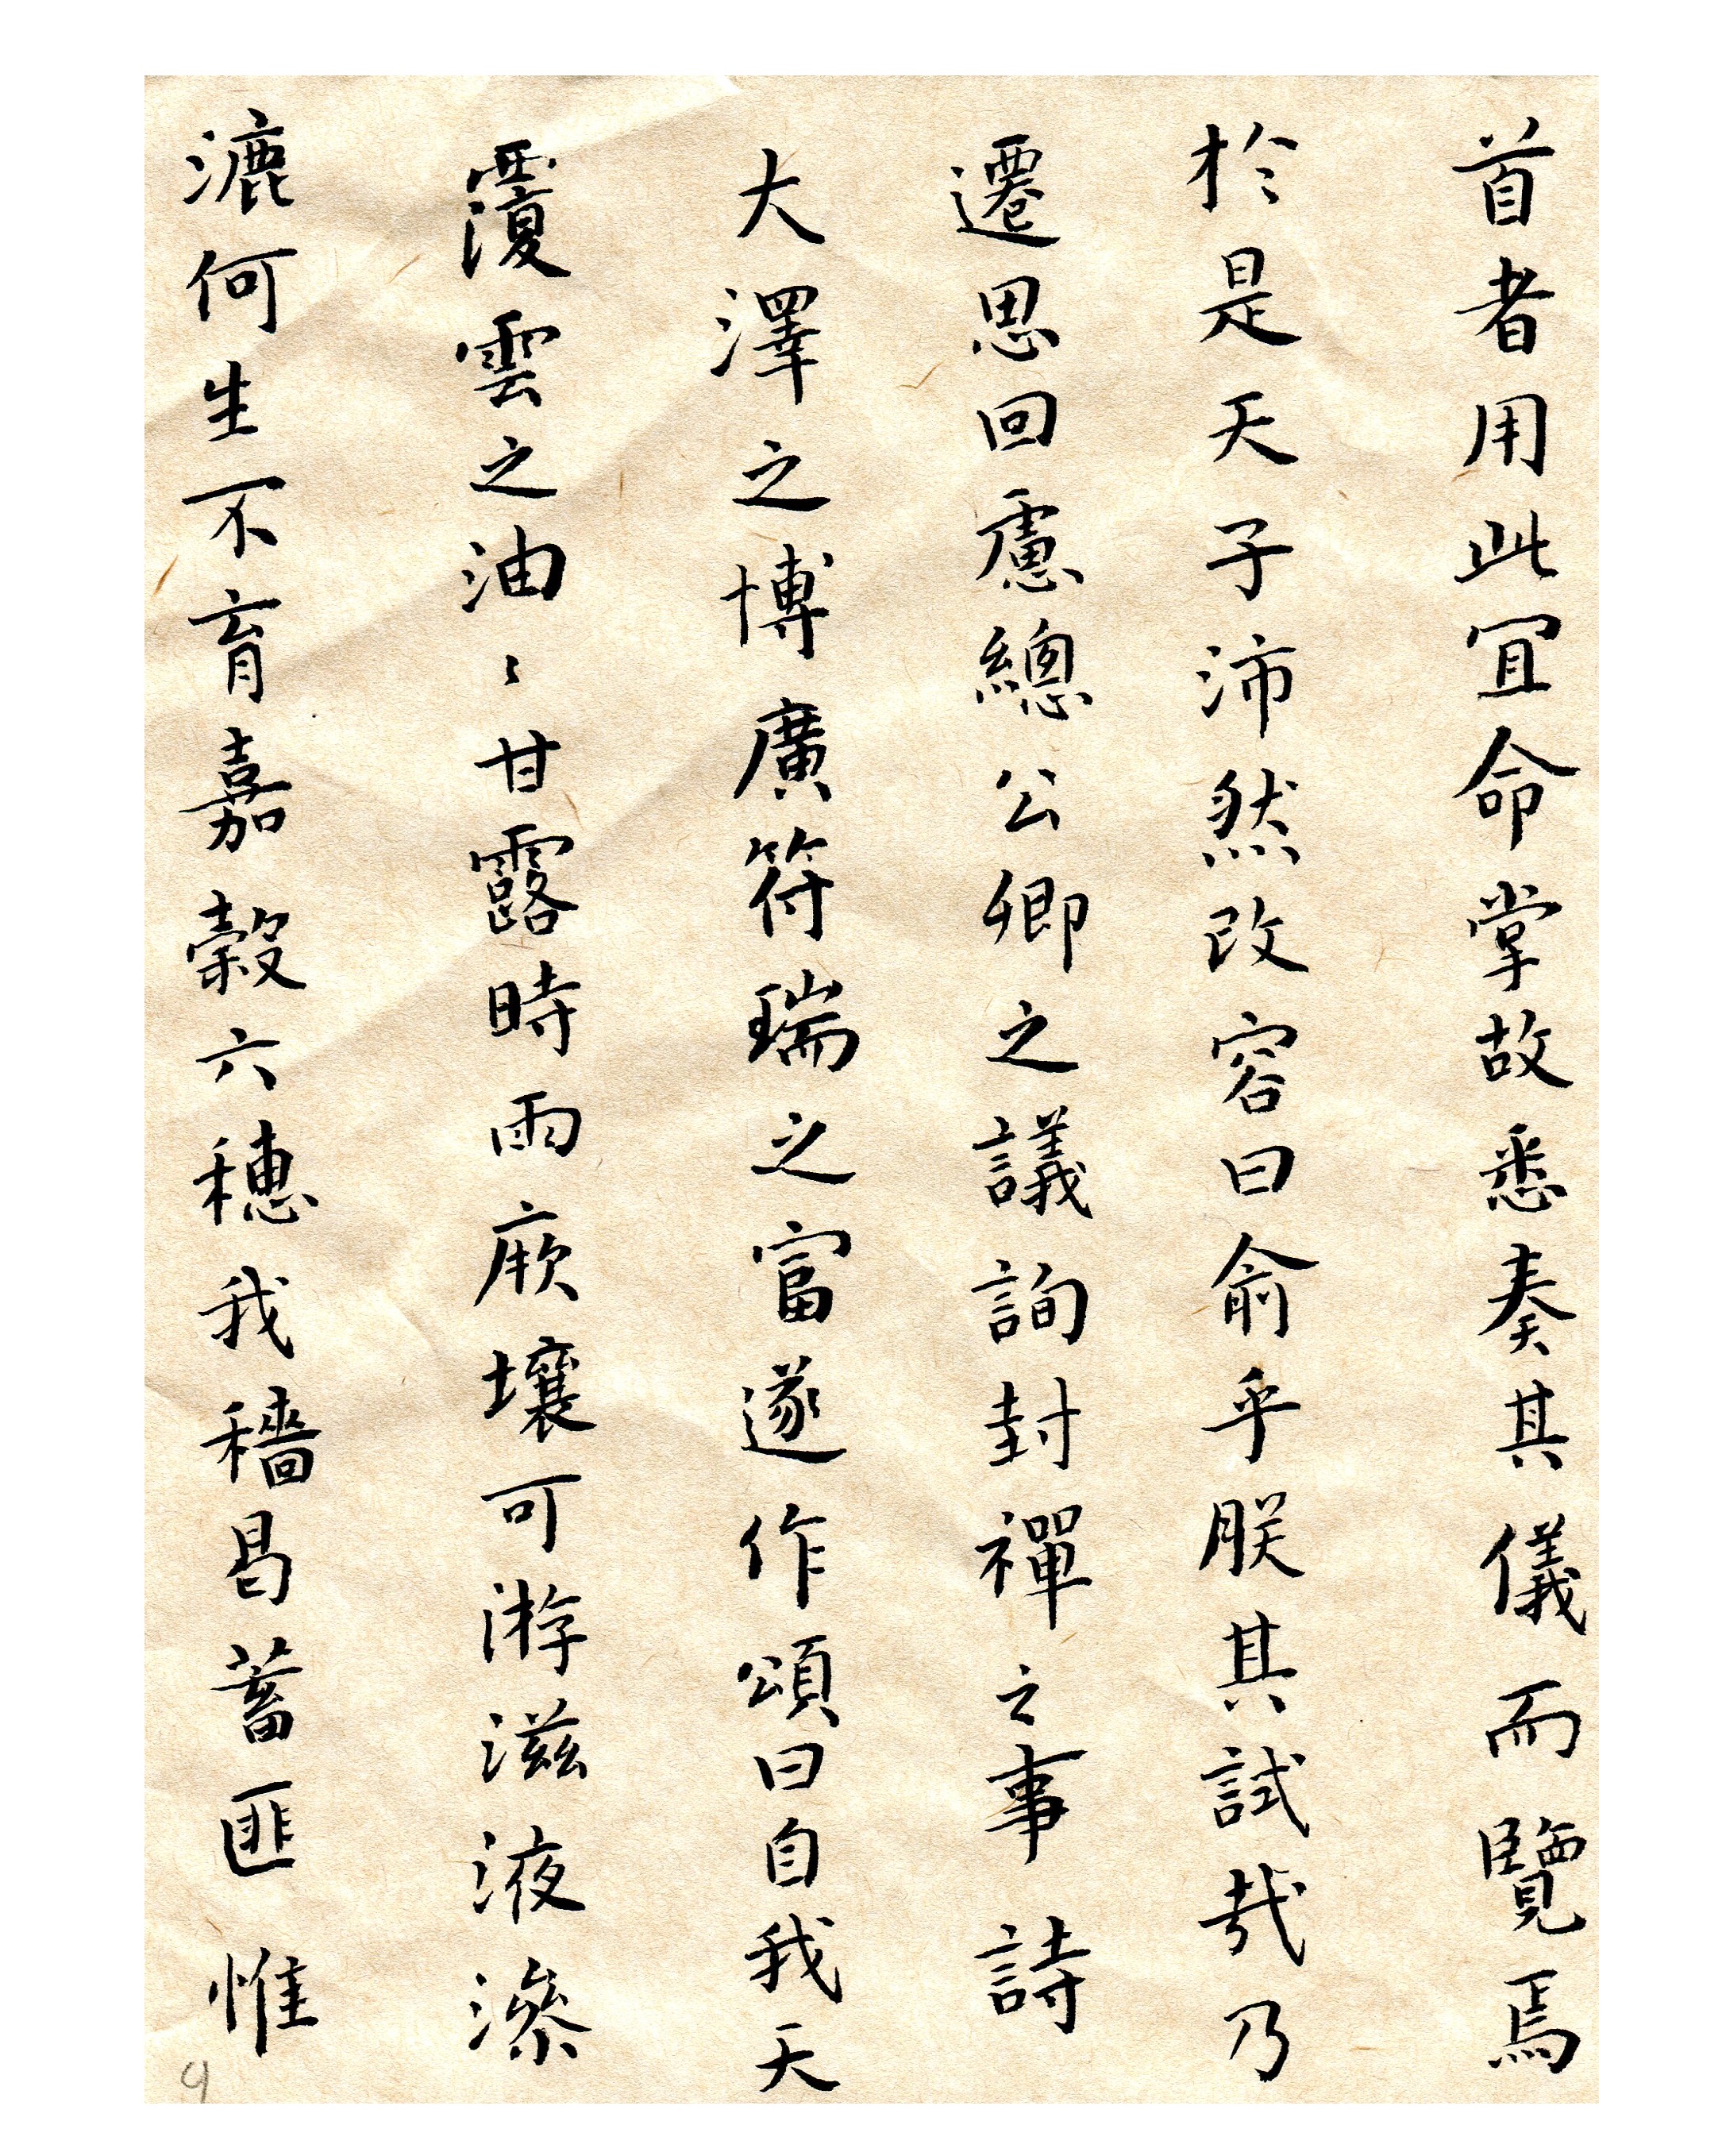 首者用此宜命掌故悉奏其儀而覽焉
於是天子沛然改容曰俞乎朕其試哉乃
遷思回慮總公卿之議詢封禪之事詩
大澤之博廣符瑞之富遂作頌曰自我天
覆雲之油〻甘露時雨厥壤可游滋液滲
漉何生不育嘉穀六穗我穡曷蓄匪惟
9